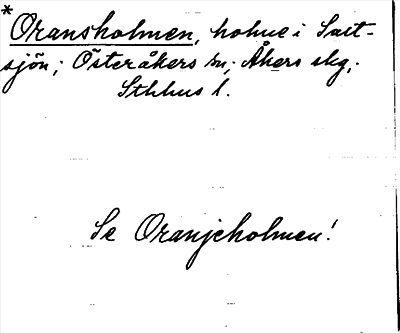 *
Oransholmen, holme i Salt-
sjön; Österåkers sn, Åkers skg,
Sthlms l.
Se Oranjeholmen!